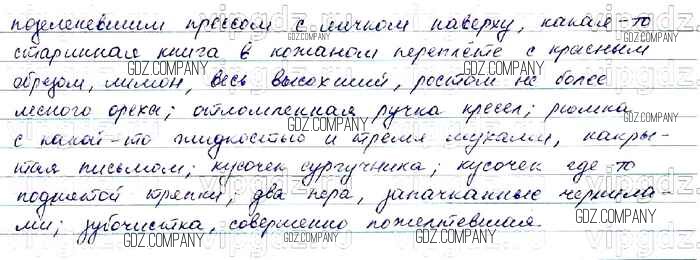 позеленевшим прессом с яичком наверху, какая-то
старинная книга в кожаном переплёте с красным
GDZ.COMPANY GDZ.COMPANY
обрезом, лимон, весь высохший, ростом не более
GDZ.COMPANY
лесного ореха; отломленная ручка кресел; рюмка
с какой-то жидкостью и тремя мухами, накры-
GDZ.COMPANY GDZ.COMPANY
тая письмом; кусочек сургучика; кусочек где-то
GDZ.COMPANY
поднятой тряпки; два пера, запачканные чернила-
ми; зубочистка, совершенно пожелтевшая.
GDZ.COMPANY GDZ.COMPANY